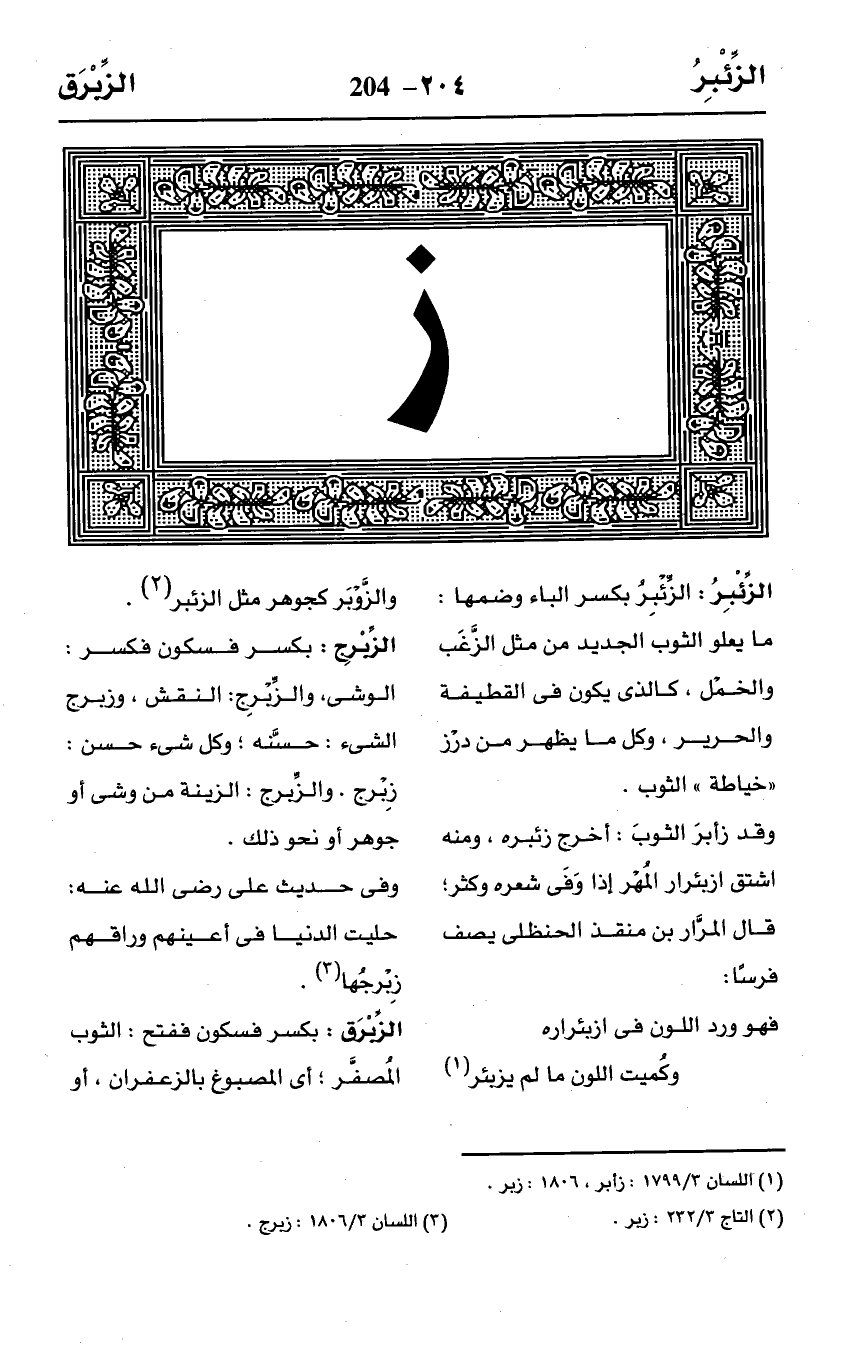 الزِّئْبِرُ
٢٠٤ - 204
الزِّبْرَق
ز
الزِّئْبِرُ : الزِّئْبِرُ بكسر الباء وضمها :
ما يعلو الثوب الجديد من مثل الزَّغَب
والخمْل ، كالذى يكون فى القطيفة
والحرير ، وكل ما يظهر من درْز
«خياطة » الثوب .
وقد زأبرَ الثوبَ : أخرج زئبره ، ومنه
اشتق ازبئرار المُهْر إذا وَفَى شعره وكثر؛
قال المرَّار بن منقذ الحنظلى يصف
فرسًا:
فهو ورد اللون فى ازبئراره
وكُميت اللون ما لم يزبئر(١)
والزَّوْبَر كجوهر مثل الزئبر(٢) .
الزِّبْرِج : بكسر فسكون فكسر :
الوشى، والزِّبْرِج: النقش ، وزبرج
الشىء : حسنَّه ؛ وكل شىء حسن :
زِبْرج . والزِّبرج : الزينة من وشى أو
جوهر أو نحو ذلك .
وفى حديث على رضى الله عنه:
حليت الدنيا فى أعينهم وراقهم
زِبْرجُها(٣) .
الزِّبْرَق : بكسر فسكون ففتح : الثوب
المُصفَّر ؛ أى المصبوغ بالزعفران ، أو
(١) اللسان ١٧٩٩/٣ : زأبر ، ١٨٠٦ : زبر .
(٢) التاج ٢٣٢/٣ : زبر .
(٣) اللسان ١٨٠٦/٣ : زبرج .